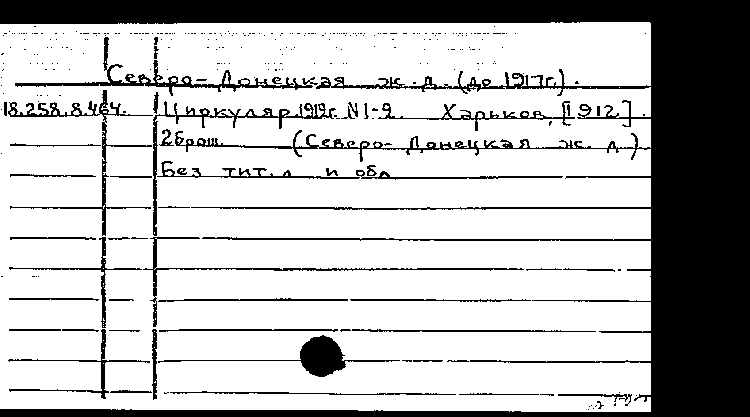 Северо-Донецкая ж.д. (до 1917г.).
18.258.8.464. Циркуляр 1912г. N 1-2. Харьков, [1912].
2 брош. (Северо-Донецкая ж. д.)
Без тит. л и обл